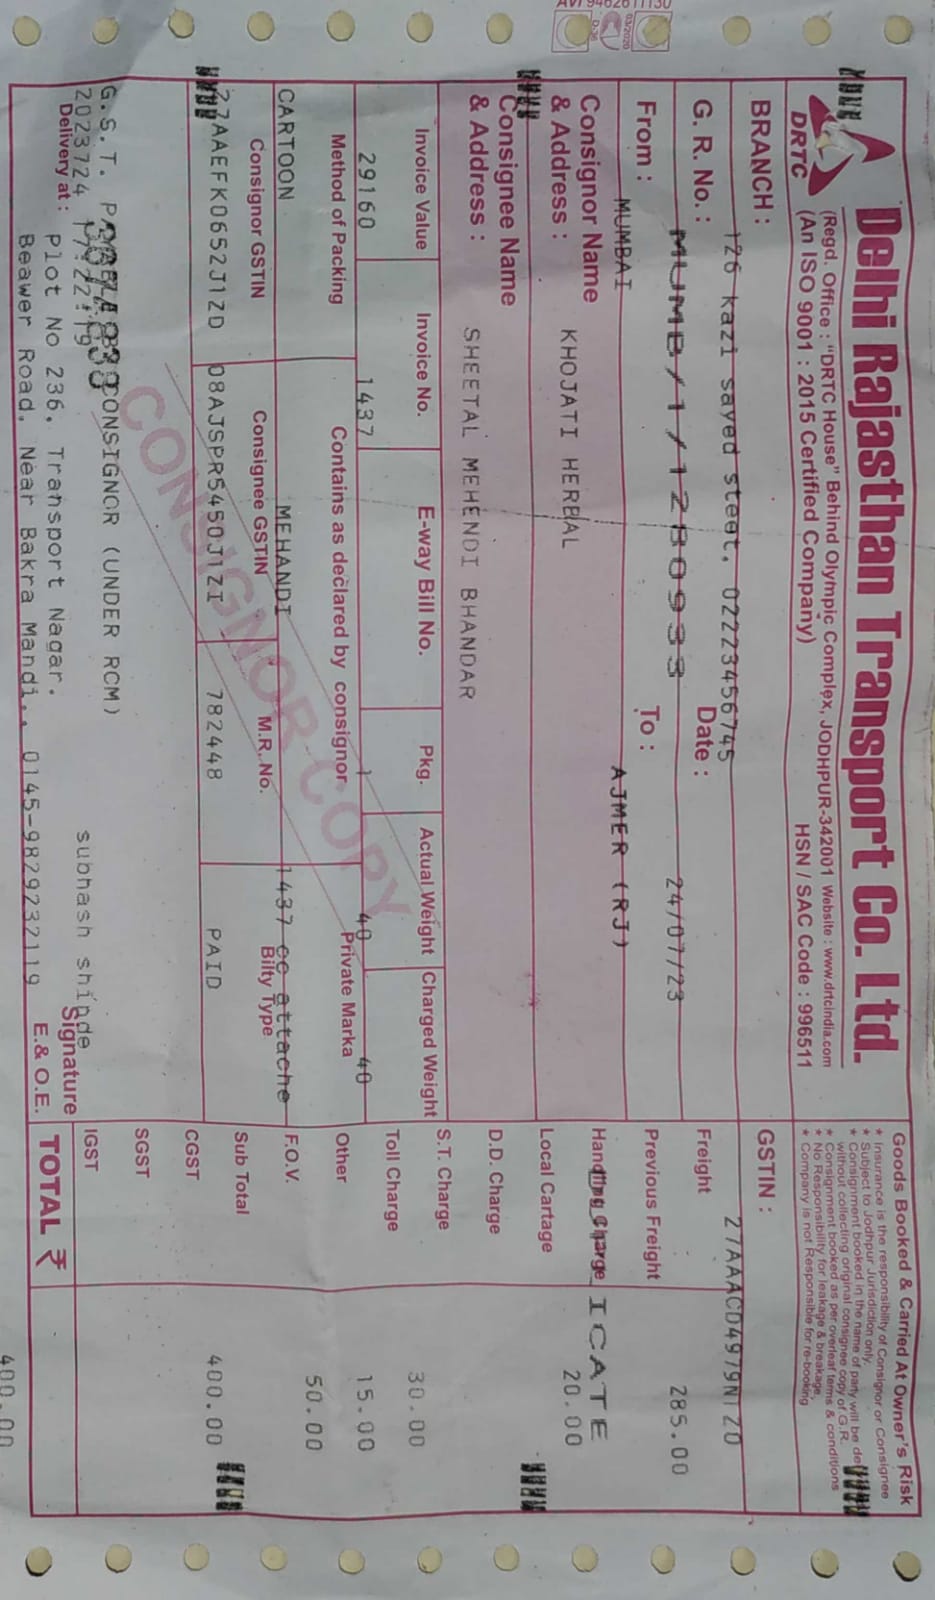 Delhi Rajasthan Transport Co. Ltd.
DRTC
(Regd. Office : "DRTC House" Behind Olympic Complex, JODHPUR-342001 Website : www.drtcindia.com
(An ISO 9001 : 2015 Certified Company)
HSN / SAC Code : 996511
Goods Booked & Carried At Owner's Risk
★ Insurance is the responsibility of Consignor or Consignee
★ Subject to Jodhpur Jurisdiction only.
★ Consignment booked in the name of party will be
without collecting original consignee copy of G.R.
★ Consignment booked as per overleaf terms & conditions
★ No Responsibility for leakage & breakage.
★ Company is not Responsible for re-booking
BRANCH :
126 kazi sayed steet. 02223456745
GSTIN :
27AAACD4979N1Z0
G. R. No. :
MUMB/1/1280933
Date :
24/07/23
From :
MUMBAI
To :
AJMER (RJ)
Consignor Name
& Address :
KHOJATI HERBAL
Consignee Name
& Address :
SHEETAL MEHENDI BHANDAR
Invoice Value
Invoice No.
E-way Bill No.
Pkg.
Actual Weight
Charged Weight
29160
1437
1
40
40
Method of Packing
Contains as declared by consignor
Private Marka
CARTOON
MEHANDI
1437 cc attache
Consignor GSTIN
Consignee GSTIN
M.R. No.
Bilty Type
27AAEFK0652J1ZD
08AJSPR5450J1ZI
782448
PAID
CONSIGNOR COPY
CONSIGNOR (UNDER RCM)
subhash shinde
Signature
Delivery at :
Plot No 236. Transport Nagar.
Beawer Road. Near Bakra Mandi.. 0145-9829232119
E.& O.E.
Freight
285.00
Previous Freight
Handling Charge
ICATE
20.00
Local Cartage
D.D. Charge
S.T. Charge
30.00
Toll Charge
15.00
Other
50.00
F.O.V.
Sub Total
400.00
CGST
SGST
IGST
TOTAL ₹
400.00